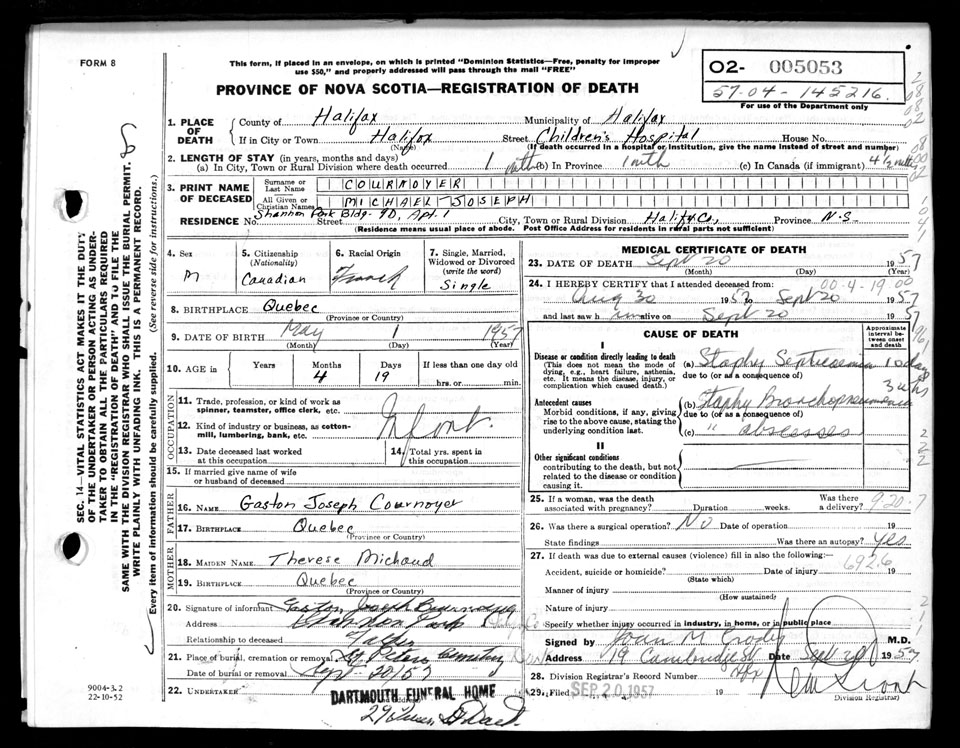 FORM 8
This form, if placed in an envelope, on which is printed "Dominion Statistics—Free, penalty for improper
use $50," and properly addressed will pass through the mail "FREE"
PROVINCE OF NOVA SCOTIA—REGISTRATION OF DEATH
O2- 005053
57-04-145216.
For use of the Department only
1. PLACE OF DEATH
County of Halifax Municipality of Halifax
If in City or Town Halifax Street Children's Hospital House No.
(Name) (If death occurred in a hospital or institution, give the name instead of street and number)
2. LENGTH OF STAY (in years, months and days)
(a) In City, Town or Rural Division where death occurred 1 mth (b) In Province 1 mth (c) In Canada (if immigrant) 4 ½ mths
3. PRINT NAME OF DECEASED
Surname or Last Name COURNOYER
All Given or Christian Names MICHAEL-JOSEPH
RESIDENCE No. Shannon Park Bldg-9D, Apt. 1 Street City, Town or Rural Division Halifx Co, Province N.S
(Residence means usual place of abode. Post Office Address for residents in rural parts not sufficient)
4. Sex M
5. Citizenship (Nationality) Canadian
6. Racial Origin French
7. Single, Married, Widowed or Divorced (write the word) Single
8. BIRTHPLACE Quebec
(Province or Country)
9. DATE OF BIRTH May 1 1957
(Month) (Day) (Year)
10. AGE in Years Months 4 Days 19 If less than one day old
hrs. or min.
OCCUPATION
11. Trade, profession, or kind of work as
spinner, teamster, office clerk, etc.
12. Kind of industry or business, as cotton-
mill, lumbering, bank, etc. Infant.
13. Date deceased last worked
at this occupation
14. Total yrs. spent in
this occupation
15. If married give name of wife
or husband of deceased
FATHER
16. NAME Gaston Joseph Cournoyer
17. BIRTHPLACE Quebec
(Province or Country)
MOTHER
18. MAIDEN NAME Therese Michaud
19. BIRTHPLACE Quebec
(Province or Country)
20. Signature of informant Gaston Joseph Cournoyer
Address Shannon Park
Relationship to deceased Father
21. Place of burial, cremation or removal St Peters Cemetery
Date of burial or removal Sep- 20/57
22. UNDERTAKER DARTMOUTH FUNERAL HOME
9004-3.2
22-10-52
MEDICAL CERTIFICATE OF DEATH
23. DATE OF DEATH Sept 20 1957
(Month) (Day) (Year)
24. I HEREBY CERTIFY that I attended deceased from: 00-4-19.00
Aug 30 1957 to Sept 20 1957
and last saw him alive on Sept 20 1957
CAUSE OF DEATH
Approximate interval between onset and death
I
Disease or condition directly leading to death
(This does not mean the mode of
dying, e.g., heart failure, asthenia,
etc. It means the disease, injury, or
complication which caused death.)
(a) Staphy Septicaemia 10 days
due to (or as a consequence of)
Antecedent causes
Morbid conditions, if any, giving
rise to the above cause, stating the
underlying condition last.
(b) Staphy Bronchopneumonia 3 wks
due to (or as a consequence of)
(c) " abscesses
II
Other significant conditions
contributing to the death, but not
related to the disease or condition
causing it.
25. If a woman, was the death
associated with pregnancy? Duration weeks. Was there a delivery? 9-20-7
26. Was there a surgical operation? No Date of operation 19
State findings Was there an autopsy? Yes
27. If death was due to external causes (violence) fill in also the following:—
692.6
Accident, suicide or homicide? Date of injury 19
(State which)
Manner of injury
(How sustained)
Nature of injury
Specify whether injury occurred in industry, in home, or in public place
Signed by Joan M Crosby M.D.
Address 19 Cambridge St Date Sept 20 1957
28. Division Registrar's Record Number
29. Filed SEP 20 1957 19
Division Registrar)
SEC. 14—VITAL STATISTICS ACT MAKES IT THE DUTY
OF THE UNDERTAKER OR PERSON ACTING AS UNDER-
TAKER TO OBTAIN ALL THE PARTICULARS REQUIRED
IN THE "REGISTRATION OF DEATH" AND TO FILE THE
SAME WITH THE DIVISION REGISTRAR WHO SHALL ISSUE THE BURIAL PERMIT.
WRITE PLAINLY WITH UNFADING INK. THIS IS A PERMANENT RECORD.
Every item of information should be carefully supplied. (See reverse side for instructions.)